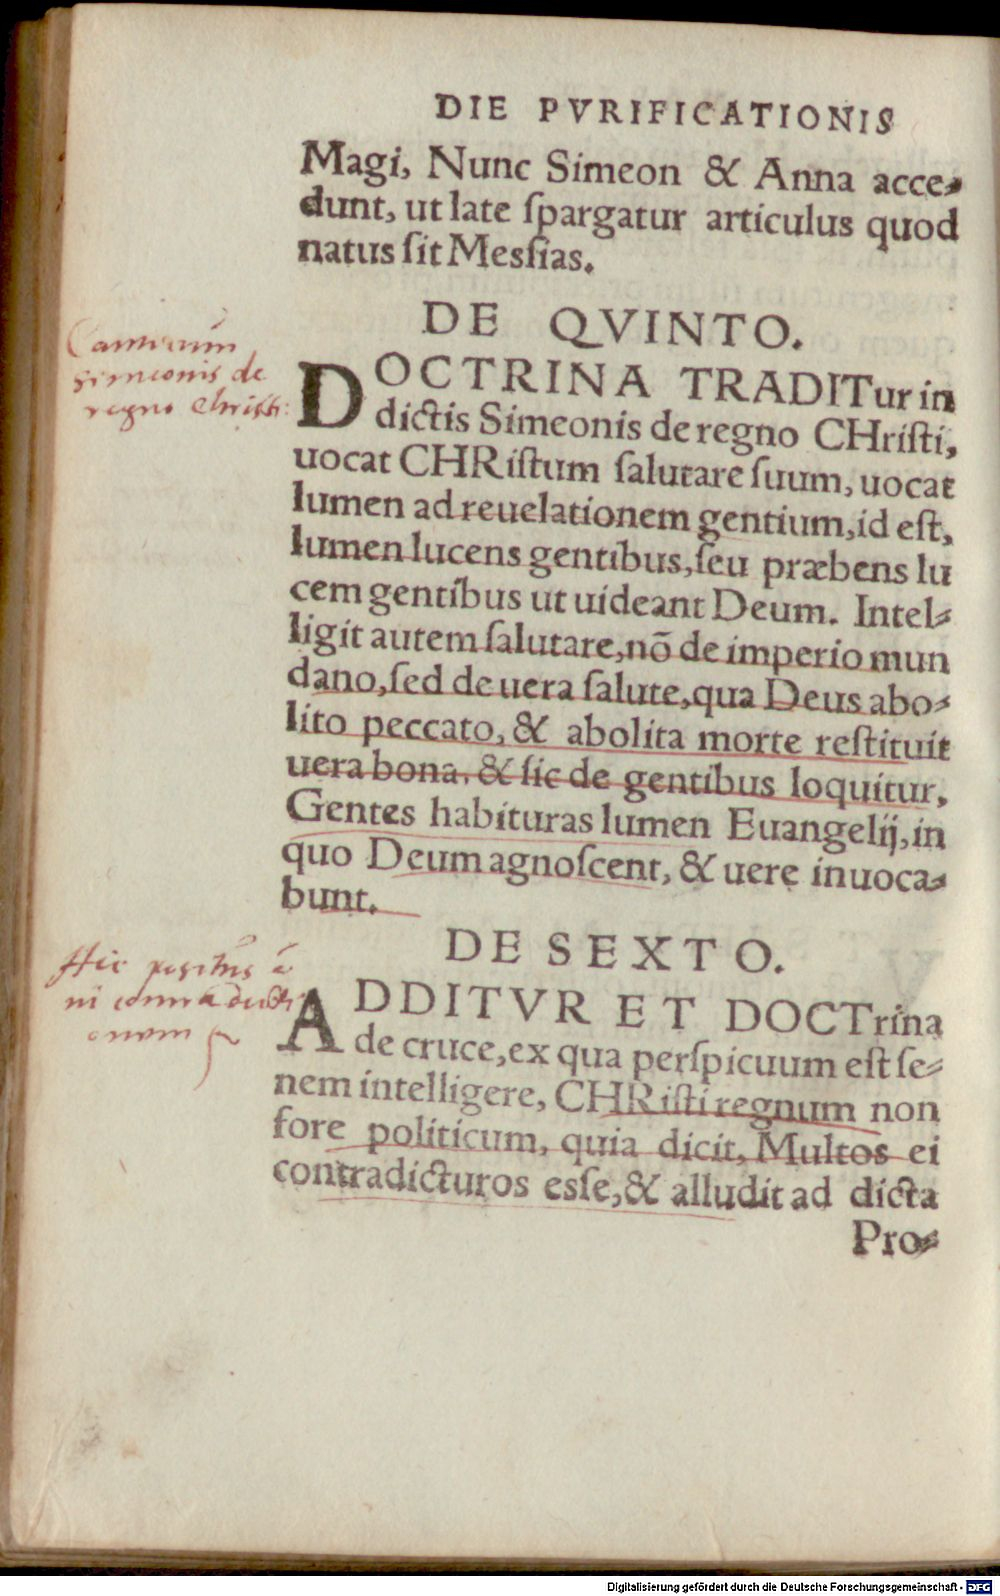 DIE PVRIFICATIONIS
Magi, Nunc Simeon & Anna acce-
dunt, ut late ſpargatur articulus quod
natus ſit Meſſias.
DE QVINTO.
DOCTRINA TRADITur in
dictis Simeonis de regno CHriſti,
uocat CHRiſtum ſalutare ſuum, uocat
lumen ad reuelationem gentium, id eſt,
lumen lucens gentibus, ſeu præbens lu
cem gentibus ut uideant Deum. Intel-
ligit autem ſalutare, nõ de imperio mun
dano, ſed de uera ſalute, qua Deus abo-
lito peccato, & abolita morte reſtituit
uera bona, & ſic de gentibus loquitur,
Gentes habituras lumen Euangelij, in
quo Deum agnoſcent, & uere inuoca-
bunt.
Canticum
Simeonis de
regno Christi:
DE SEXTO.
ADDITVR ET DOCTrina
de cruce, ex qua perſpicuum eſt ſe-
nem intelligere, CHRiſti regnum non
fore politicum, quia dicit, Multos ei
contradicturos eſſe, & alludit ad dicta
Pro-
Hic positus
in contradicti
onem
Digitalisierung gefördert durch die Deutsche Forschungsgemeinschaft - DFG